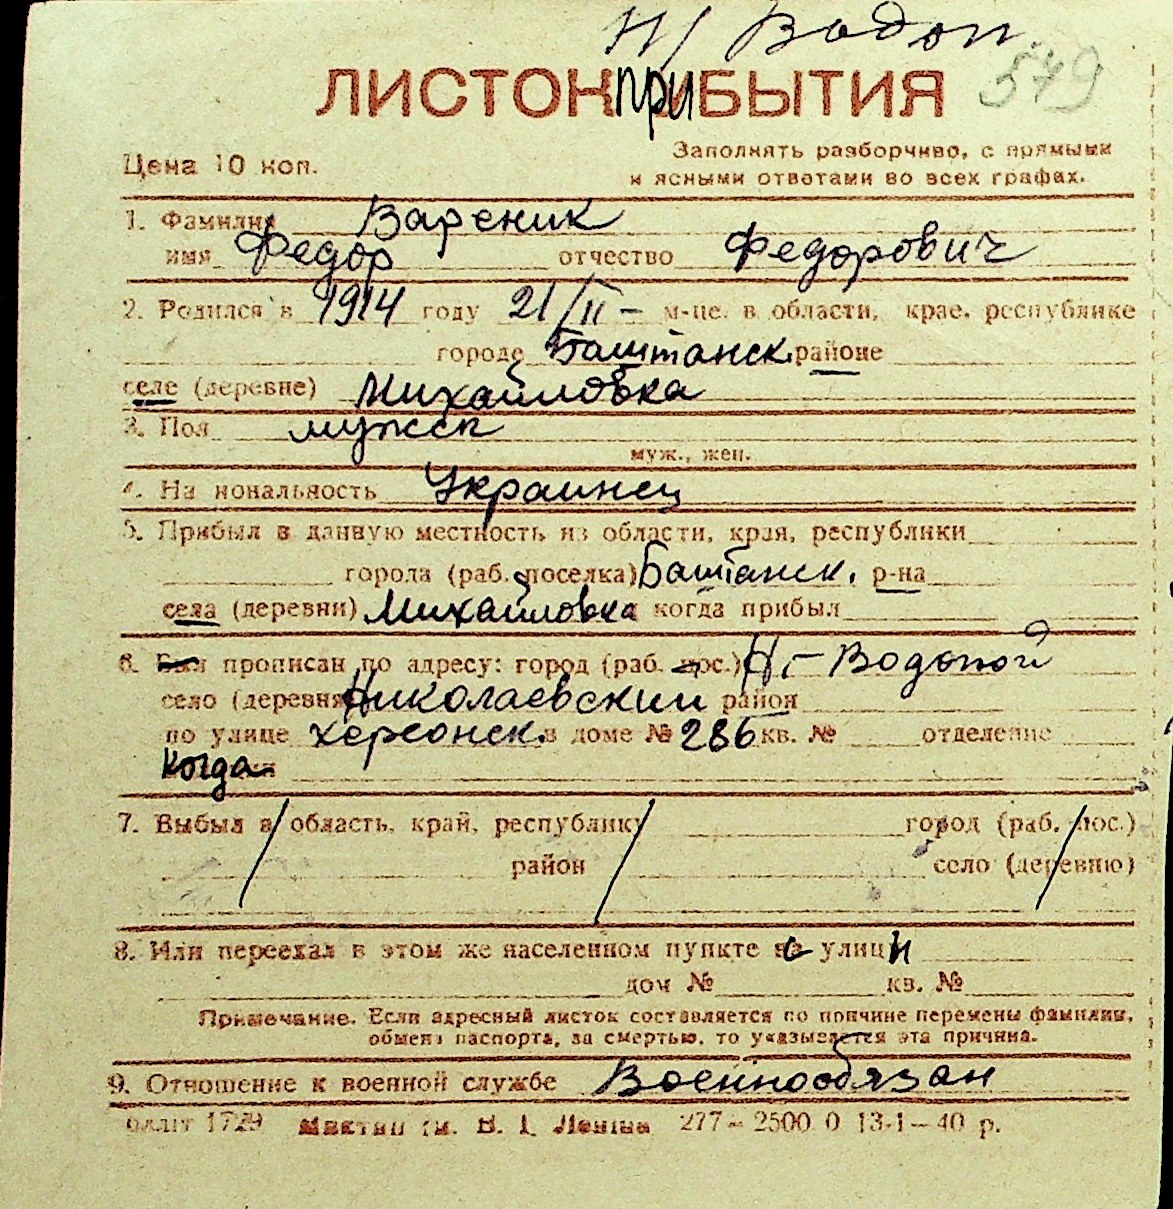 Н/ Водоп
ЛИСТОК ПРИБЫТИЯ 549
Цена 10 коп.
Заполнять разборчиво, с прямыми
и ясными ответами во всех графах.
1. Фамилия Вареник
имя Федор отчество Федорович
2. Родился в 1914 году 21/II – м-це. в области, крае, республике
городе Баштанск. районе
селе (деревне) Михайловка
3. Пол мужск
муж., жен.
4. Национальность Украинец
5. Прибыл в данную местность из области, края, республики
города (раб. поселка) Баштанск. р-на
села (деревни) Михайловка когда прибыл
6. прописан по адресу: город (раб. пос.) Н.-Водопой
село (деревня) Николаевский район
по улице Херсонск. в доме № 286 кв. № отделение
Когда
7. Выбыл в область, край, республику город (раб. пос.)
район село (деревню)
8. Или переехал в этом же населенном пункте с улицы
дом № кв. №
Примечание. Если адресный листок составляется по причине перемены фамилии,
обмена паспорта, за смертью, то указывается эта причина.
9. Отношение к военной службе Военнообязан
1729 В. І. Леніна 277 – 2500 0 13-1 – 40 р.